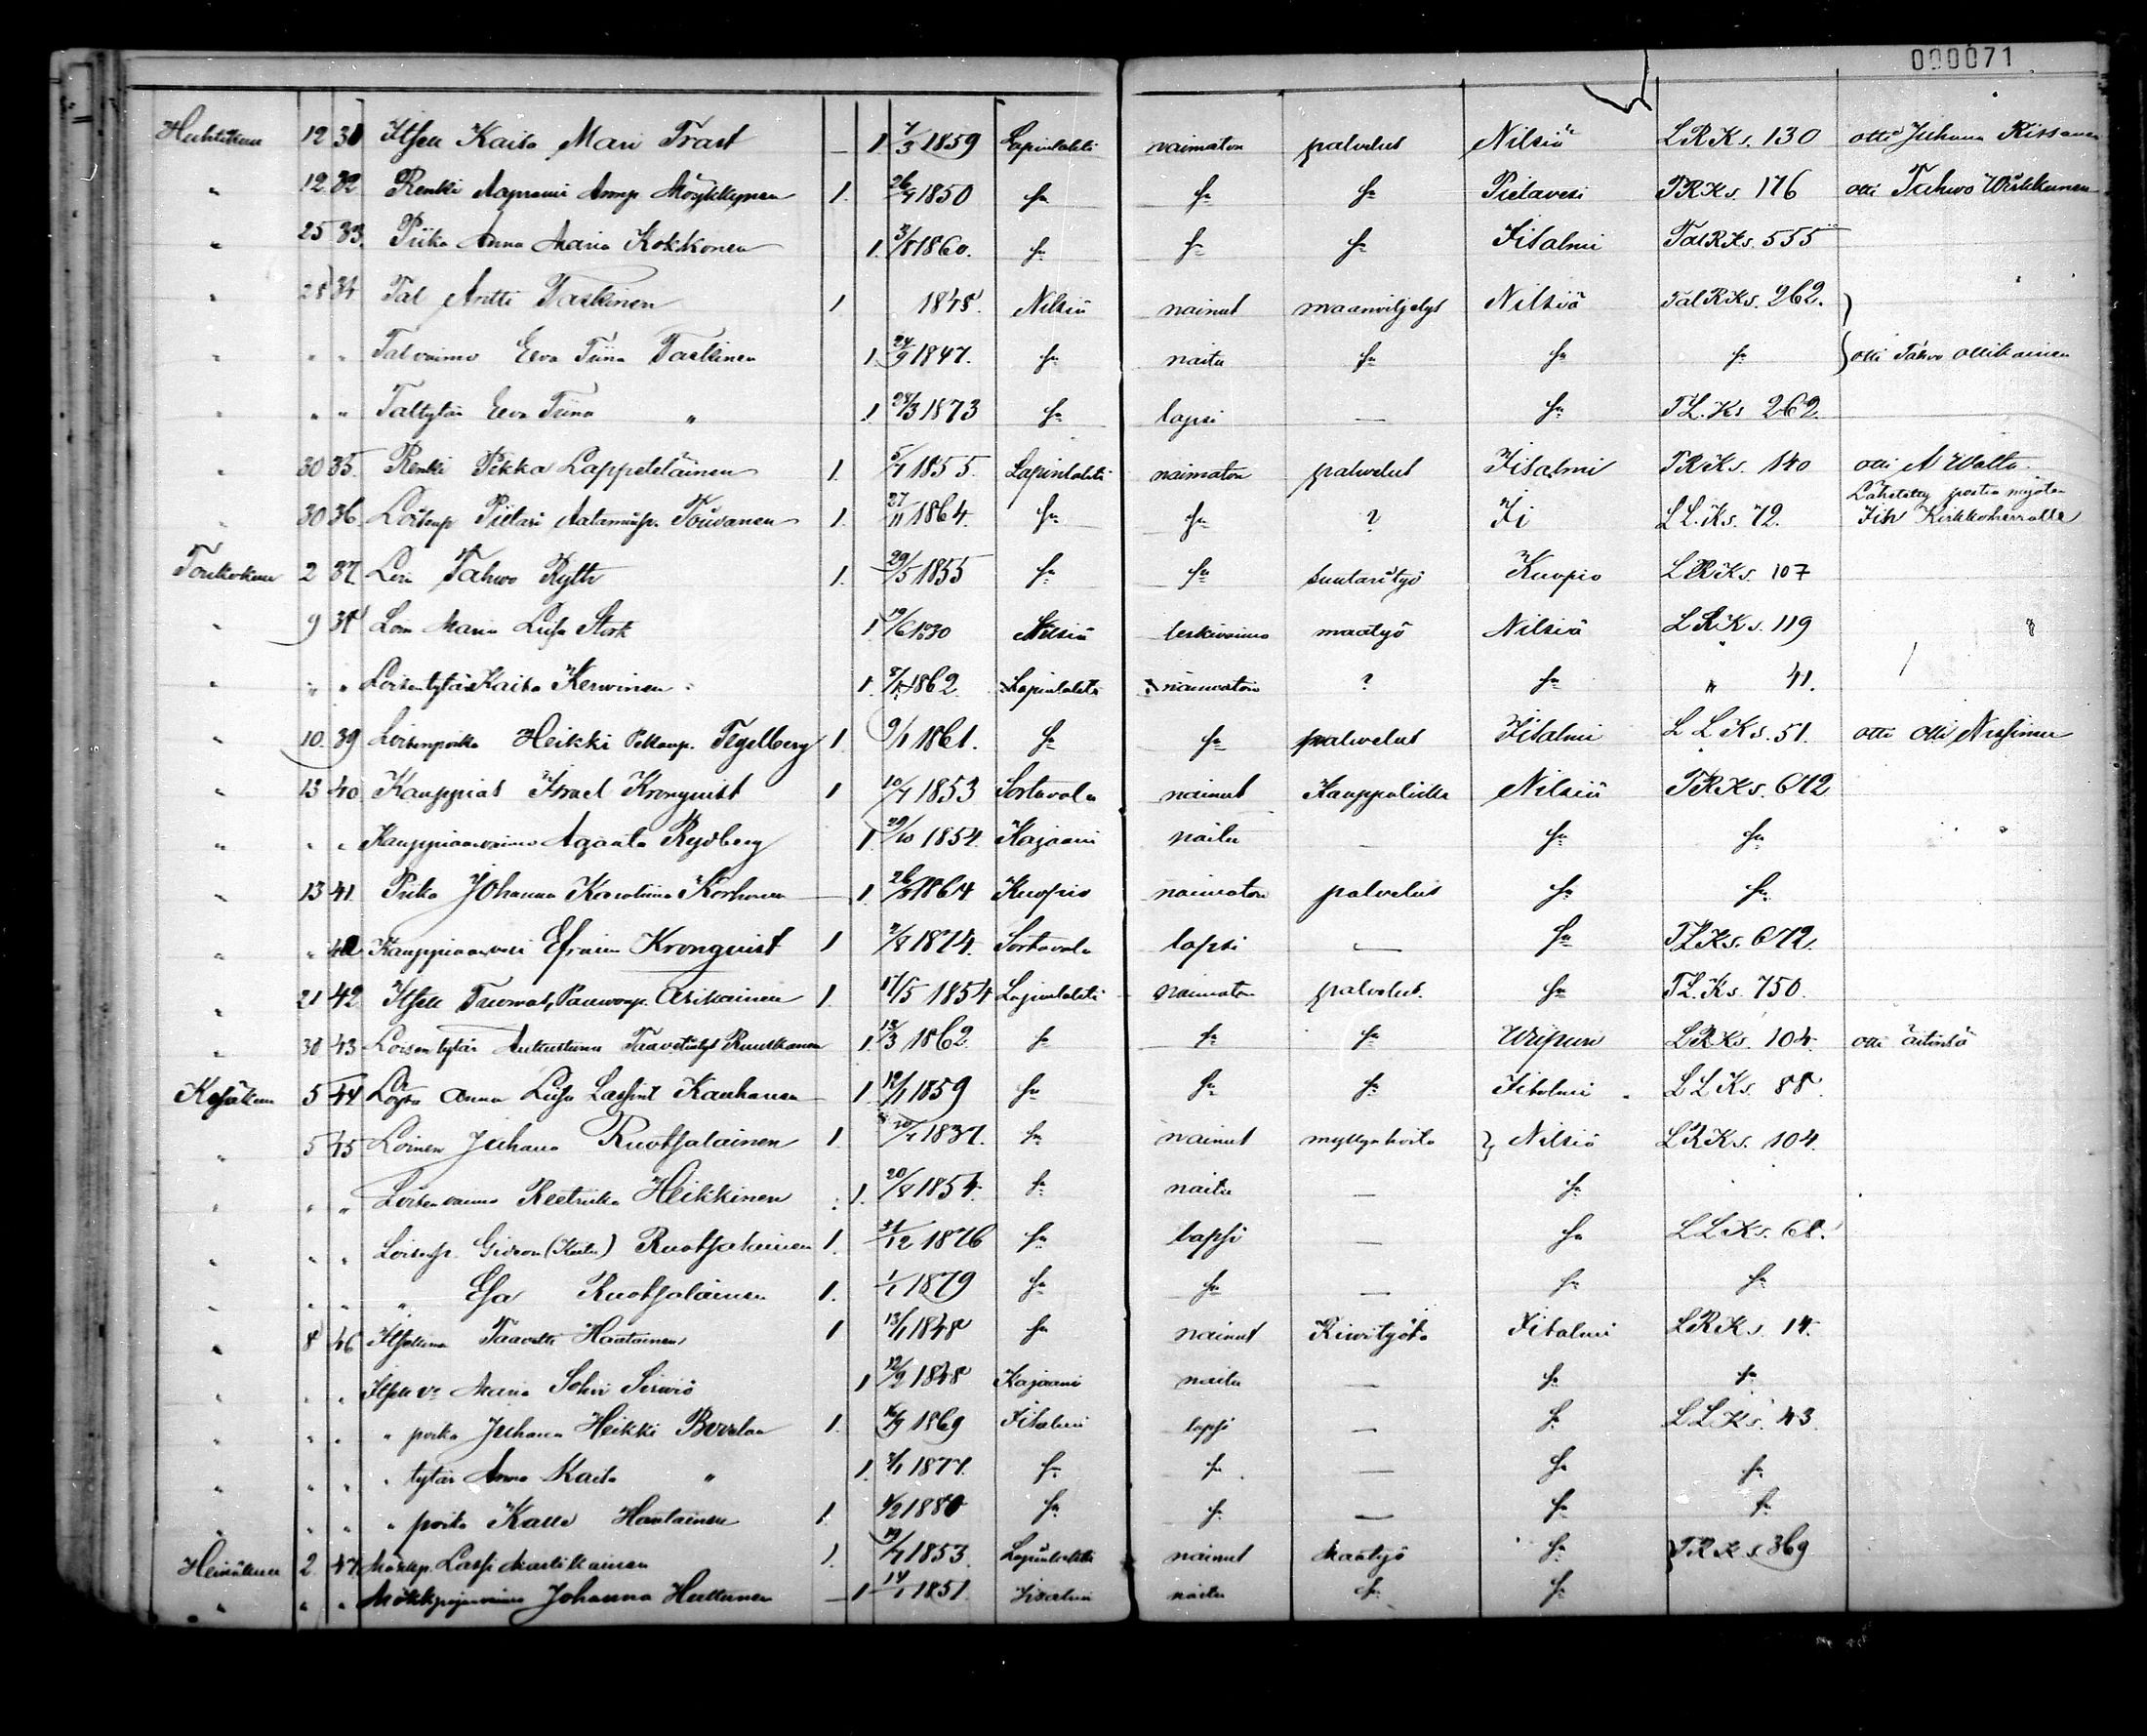 000071
Huhtikuu 12 31 Itsell Kaisa Mari Trast — 1 7/3 1859 Lapinlahti naimaton palvelus Nilsiä L.R.Ks. 130 otti Juhana Rissanen
" 12 32 Renki Aapraami Möykkynen 1. 26/4 1850 sn sn sn Pielavesi T.R.Ks. 176 otti Tahwo
" 25 33. Piika Anna Maria Kokkonen 1. 3/8 1860. sn sn sn Iisalmi Tal.R.Ks. 555
" 28 34 Tal Antti Taskinen 1 1848. Nilsiä nainut maanviljelys Nilsiä Tal.R.Ks. 262.
" " " Tal vaimo Eeva Tiina Taskinen 1. 24/9 1847. sn naitu sn sn sn otti Tahvo Ollikainen
" " " Taltytär Eeva Tiina " 1. 28/3 1873 sn lapsi — sn T.L.Ks 262.
" 30 35. Renki Pekka Lappeteläinen 1. 5/7 1855. Lapinlahti naimaton palvelus Iisalmi T.R.Ks. 140 otti A Walta
" 30 36. Loisenp Pietari Aataminp. Toivanen 1. 27/11 1864. sn sn ? Ii L.L.Ks. 72. Lähetetty postin myötä Iisa Kirkkoherralle
Toukokuu 2 37. Loin Tahwo Ryth 1. 29/5 1855 sn sn suutarityö Kuopio L.R.Ks. 107
" 9 38 Loin Maria Liisa Stork 1 19/6 1830 Nilsiä leskivaimo maatyö Nilsiä L.R.Ks. 119
" " " Loisentytär Kaisa Kerwinen 1. 1862 Lapinlahti naimaton ? sn " 41.
" 10. 39 Loisenpoika Heikki Pekanp. Tegelberg 1 9/1 1861. sn sn palvelus Iisalmi L.L.Ks. 51. otti Olli Nissinen
" 13 40 Kauppias Israel Kronquist 1 10/7 1853 Sortavala nainut Nilsiä T.R.Ks. 672
" " " Kauppiaanvaimo Agaata Rydberg 1. 29/10 1854. Kajaani naitu — sn sn
" 13 41. Piika Johanna Karoliina Korhonen — 1. 26/8 1864 Kuopio naimaton palvelus sn sn
" " 42 Kauppiaan Efraim Kronquist 1 2/8 1874. Sortavala lapsi — sn T.L.Ks. 672.
" 21 42 Itsell Tuomas Paavonp. Asikainen 1. 17/5 1854 Lapinlahti naimaton palvelus. sn T.L.Ks. 750.
" 30 43 Loisentytär Aukustiina Taavetint Ruuskanen 1. 13/3 1862. sn sn sn Wiipuri L.R.Ks. 104. otti äitinsä
Kesäkuu 5 44 Anna Liisa Lassint Kauhanen 1. 12/1 1859 sn sn sn Iisalmi L.L.Ks. 88.
" 5 45 Loinen Juhana Ruotsalainen 1. 1837. sn nainut myllynhoito Nilsiä L.R.Ks. 104.
" " " Loisenvaimo Reetriika Heikkinen 1. 20/8 1854. sn naitu — sn
" " " Loisenp. Gideon (Kaitu) Ruotsalainen 1. 31/12 1876 sn lapsi — sn L.L.Ks. 68.
" " " " Esa Ruotsalainen 1. 1/1 1879 sn sn — sn sn
" 8 46 Itsellinen Taavetti Hautainen 1 13/1 1848 sn nainut Kiwityötä Iisalmi L.R.Ks. 14.
" " " Itsell va Maria Sohvi Serwiö 1 12/2 1848 Kajaani naitu — sn sn
" " " " poika Juhana Heikki 1. 1869 Iisalmi lapsi — sn L.L.Ks. 43.
" " " " tytär Anna Kaisa " 1. 1877. sn sn — sn sn
" " " " poika Kalle Hautainen 1. 4/2 1880 sn sn — sn sn
Heinäkuu 2 47 Mökkp. Lassi Martikainen 1. 19/7 1853. Lapinlahti nainut Maatyö sn T.R.Ks 369
" " " Mökkpojanvaimo Johanna Huttunen — 1 14/1 1851. Iisalmi naitu sn sn